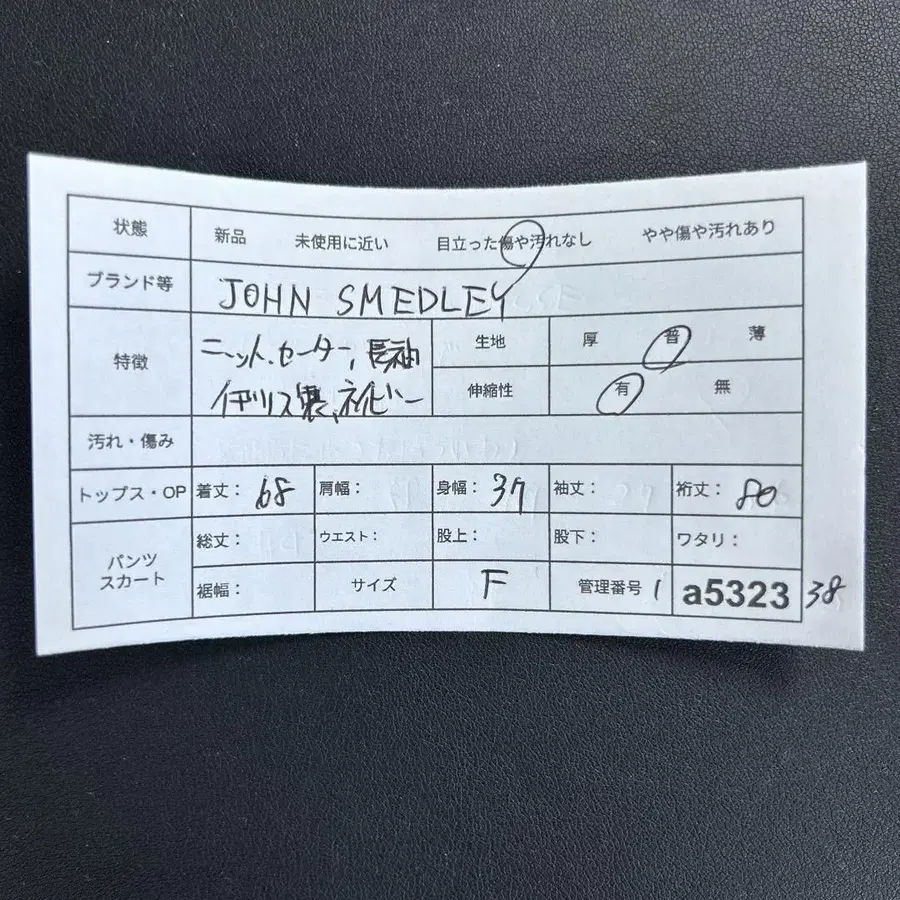 状態 新品 未使用に近い 目立った傷や汚れなし やや傷や汚れあり
ブランド等 JOHN SMEDLEY
特徴 ニット、セーター、長袖 生地 厚 普 薄
イギリス製、ネイビー 伸縮性 有 無
汚れ・傷み
トップス・OP 着丈: 68 肩幅: 身幅: 37 袖丈: 裄丈: 80
パンツ スカート 総丈: ウエスト: 股上: 股下: ワタリ:
裾幅: サイズ F 管理番号 1 a5323 38